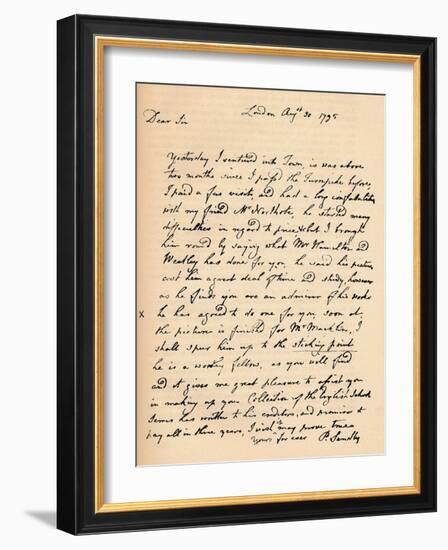 London Augst 30 1795
Dear Sir
Yesterday I ventured into Town, is was above
two months since I pass'd the Turnpike before,
I paid a few visits and had a long confabulation
with my friend Mr Northcote, he started many
difficulties in regard to price, but I brought
him round by saying what Mr Hamilton and
Weatley has done for you, he said his pictures
cost him a great deal of time and study, however
as he finds you are an admirer of his works
x he has agreed to do one for you soon as
the picture is finish'd for Mr Macklin, I
shall spur him up to the sticking point
he is a worthy fellow, as you will find
and it gives me great pleasure to assist you
in making up your Collection of the English School
has written to his creditors, and promises to
pay all in three years, I wish it may prove true
yours for ever P. Sandby